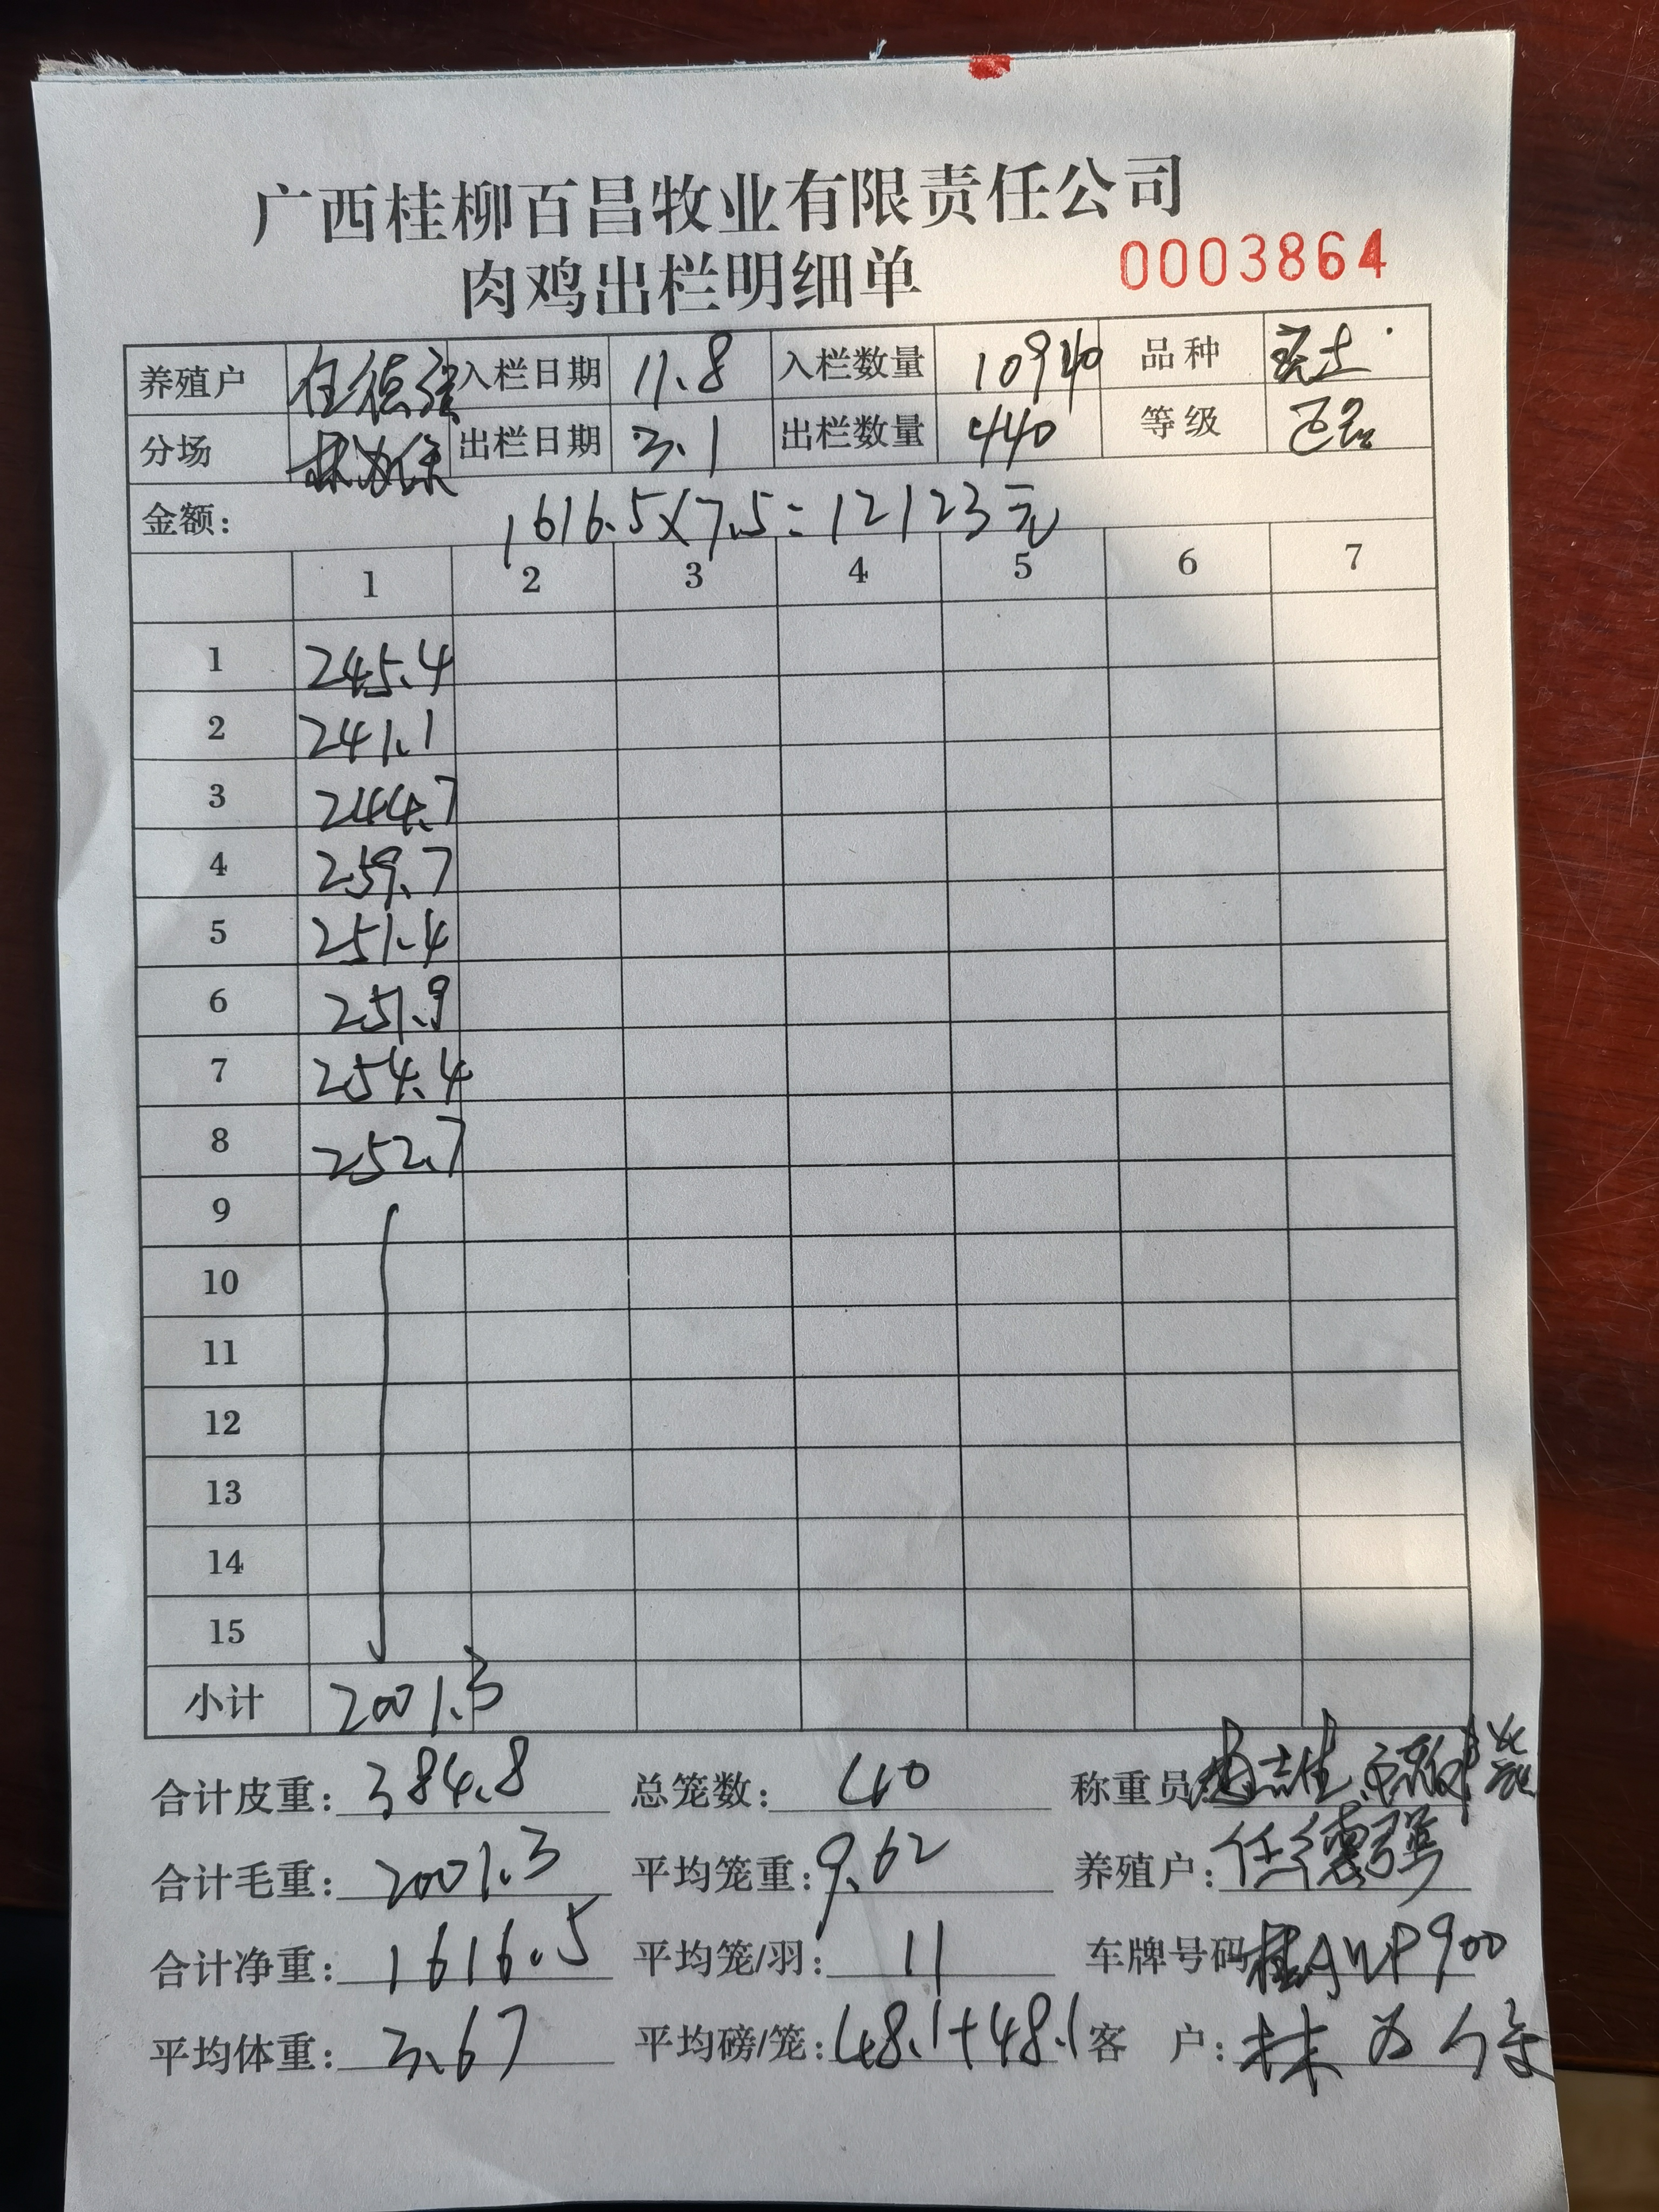 广西桂柳百昌牧业有限责任公司
肉鸡出栏明细单 0003864
养殖户 任德强 入栏日期 11.8 入栏数量 10940 品种
分场 出栏日期 3.1 出栏数量 440 等级
金额: 1616.5×7.5=12123元
1 2 3 4 5 6 7
1 245.4
2 241.1
3 244.7
4 259.7
5 251.4
6 251.9
7 254.4
8 252.7
9
10
11
12
13
14
15
小计 2001.3
合计皮重: 384.8 总笼数: 40 称重员:
合计毛重: 2001.3 平均笼重: 9.62 养殖户: 任德强
合计净重: 1616.5 平均笼/羽: 11 车牌号码 桂AWP900
平均体重: 3.67 平均磅/笼: 48.1+48.1 客 户: 林